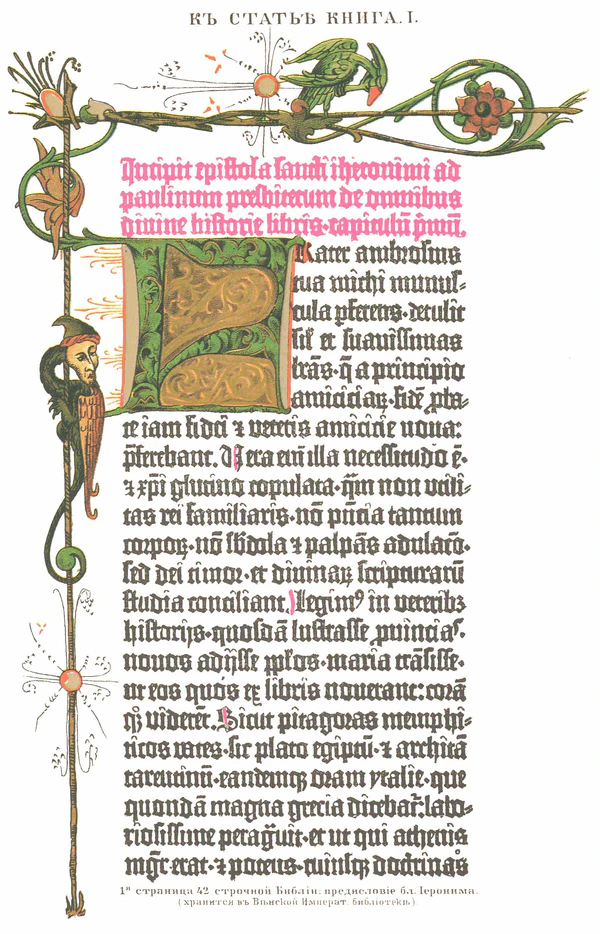 КЪ СТАТЬѢ КНИГА. I.
Incipit epistola sancti iheronimi ad
paulinum presbiterum de omnibus
divine historie libris·capitulū pmū.
Frater ambrosius
tua michi munus-
cula pferens·detulit
sil et suavissimas
lrās·q̄ a principio
amiciciaꝝ·fidē pba-
te iam fidei ⁊ veteris amicicie nova:
pferebant. Vera eni illa necessitudo ē·
⁊ xpi glutino copulata·qm non utili-
tas rei familiaris·nō pncia tantum
corpoꝝ·nō sbdola ⁊ palpās adulacō·
sed dei timor·et divinaꝝ scripturarū
studia conciliant. Legimꝰ in veteribꝫ
historijs·quosdā lustrasse pvincias·
novos adijsse pplos·maria trāsisse·
ut eos quos ex libris noverant: corā
qꝫ viderēt. Sicut pitagoras memphi-
ticos vates·sic plato egiptū·⁊ architā
tarentinū·eandemqꝫ oram ytalie·que
quondā magna grecia dicebat̄: labo-
riosissime peragvit·et ut qui athenis
mgr erat·⁊ potens·cuiusqꝫ doctrinas
1я страница 42 строчной Библіи: предисловіе бл. Іеронима.
(хранится въ Вѣнской Императ. библіотекѣ)